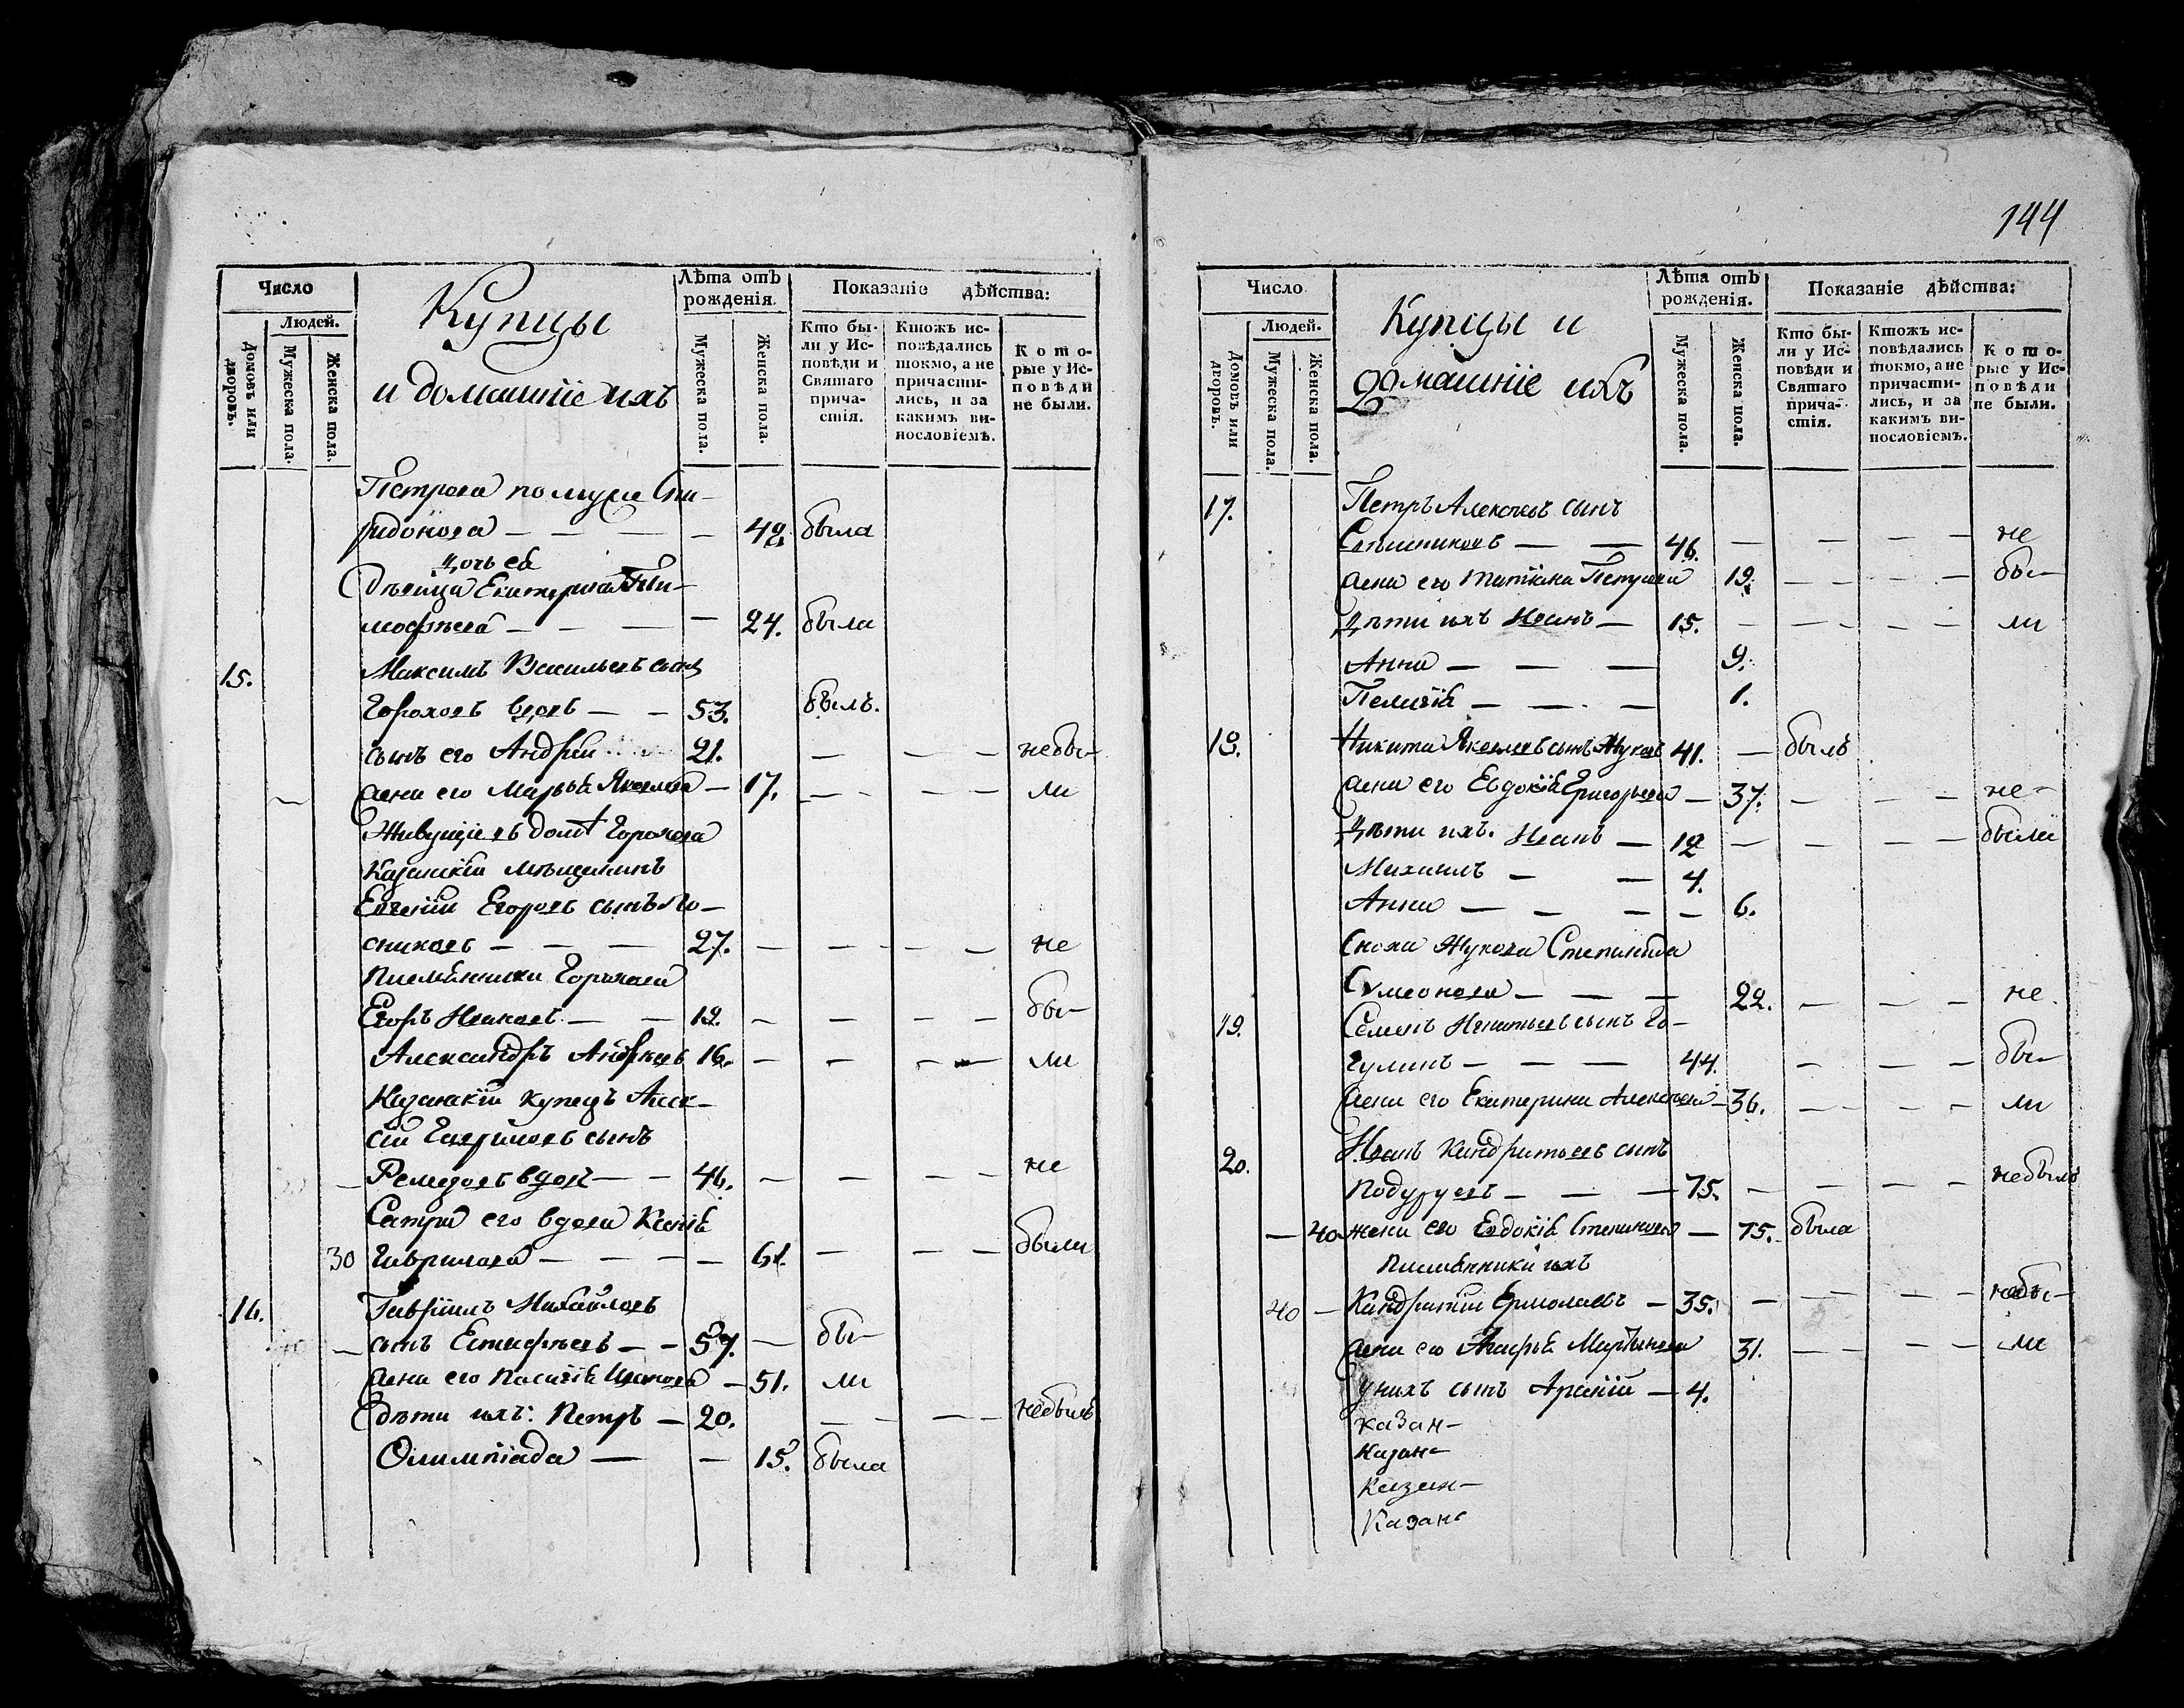 Число
Людей.
Домовъ или дворовъ.
Мужеска пола.
Женска пола.
Купцы
и домашніе ихъ
Лѣта отъ рожденія.
Мужеска пола.
Женска пола.
Показаніе дѣйства:
Кто были у Исповѣди и Святаго причастія.
Ктожъ исповѣдались токмо, а не причастились, и за какимъ винословіемъ.
Которые у Исповѣди не были.
Петрова по мужѣ Спи-
ридонова — — — — 49. была
дочь ея
Дѣвица Екатерина
— — — — 24. была
15. Максимъ Васильевъ сынъ
Гороховъ вдовъ — — 53. былъ.
сынъ его Андрей 21. — — — — небы-
жена его Марья Яковлева — 17. — — — — ли
Живущіе въ домѣ Горохова
Казанскій мѣщанинъ
Евгеній Егоровъ сынъ
— — — 27. — — — — не
Племянники Горохова
Егоръ Ивановъ — — 19. — — — — бы-
Александръ Андреевъ 16. — — — — ли
Казанскій купецъ Алек-
сій Гавриловъ сынъ
вдовъ — — 46. — — — — не
Сестра его вдова Ксенія
30 Гаврилова — — — — 61. — — — были
16. Гавріилъ Михайловъ
сынъ Естифѣевъ — — 57. — бы-
жена его Пелагія Иванова — 51. ли
дѣти ихъ: Петръ — 20. — — — — небылъ
Олимпіада — — 15. была
144
Число
Людей.
Домовъ или дворовъ.
Мужеска пола.
Женска пола.
Купцы и
домашніе ихъ
Лѣта отъ рожденія.
Мужеска пола.
Женска пола.
Показаніе дѣйства:
Кто были у Исповѣди и Святаго причастія.
Ктожъ исповѣдались токмо, а не причастились, и за какимъ винословіемъ.
Которые у Исповѣди не были.
17. Петръ Алексѣевъ сынъ
— — 46. — — — — не
жена его Татіана Петрова 19. — — — — бы-
Дѣти ихъ Иванъ — 15. — — — — — ли
Анна — — — 9.
Пелагія — — — 1.
18. Никита Яковлевъ сынъ Жуковъ 41. — былъ
жена его Евдокія Григорьева — 37. — — — не-
Дѣти ихъ. Иванъ — 12 — — — — были
Михаилъ — — 4.
Анна — — — — 6.
Сноха Жукова Степанида
Сумеонова — — — 22. — — — не.
19. Семенъ Игнатьевъ сынъ Го-
гулинъ — — — 44. — — — бы-
жена его Екатерина Алексѣева — 36. — — — — ли
20. Иванъ Кандратьевъ сынъ
Подуруевъ — — — 75. — — — — — небылъ
— 40 жена его Евдокія Степанова — 75. была
Племянники ихъ
40 — Кандратій Ермолаевъ — 35. — — — — — небы-
жена его Агафья Мартынова 31. — — — — ли
у нихъ сынъ Арсеній — 4.
казан-
Казан-
Казан-
Казан-